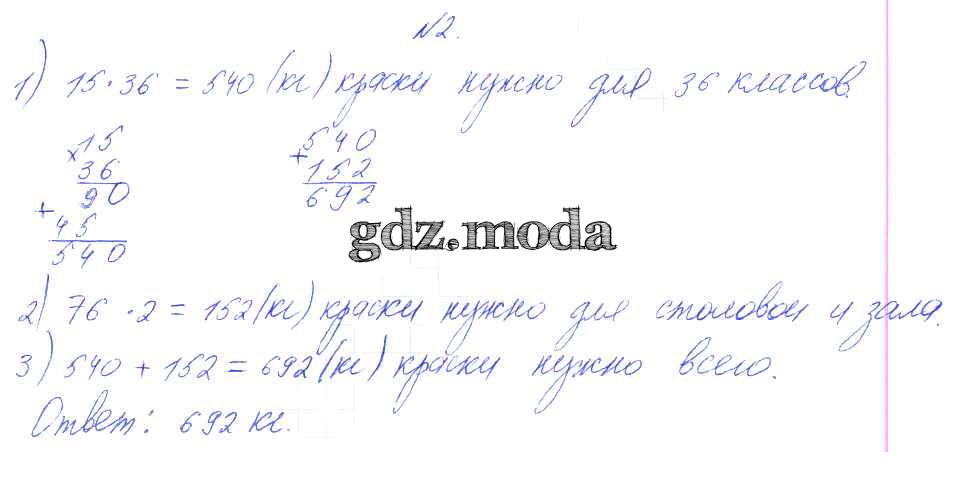 №2.
1) 15·36 = 540 (кг) краски нужно для 36 классов.
×15
36
90
+
45
540
+540
152
692
gdz.moda
2) 76 · 2 = 152 (кг) краски нужно для столовой и зала.
3) 540 + 152 = 692 (кг) краски нужно всего.
Ответ: 692 кг.